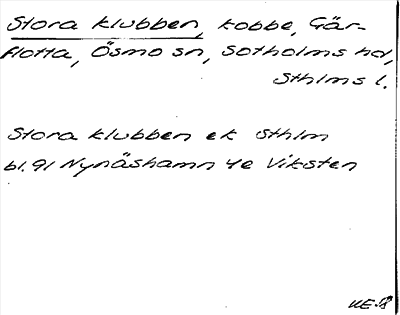 Stora klubben, kobbe, Går-
flotta, Ösmo sn, Sotholms hd,
Sthlms l.
Stora klubben ek Sthlm
bl. 91 Nynäshamn 4e Viksten